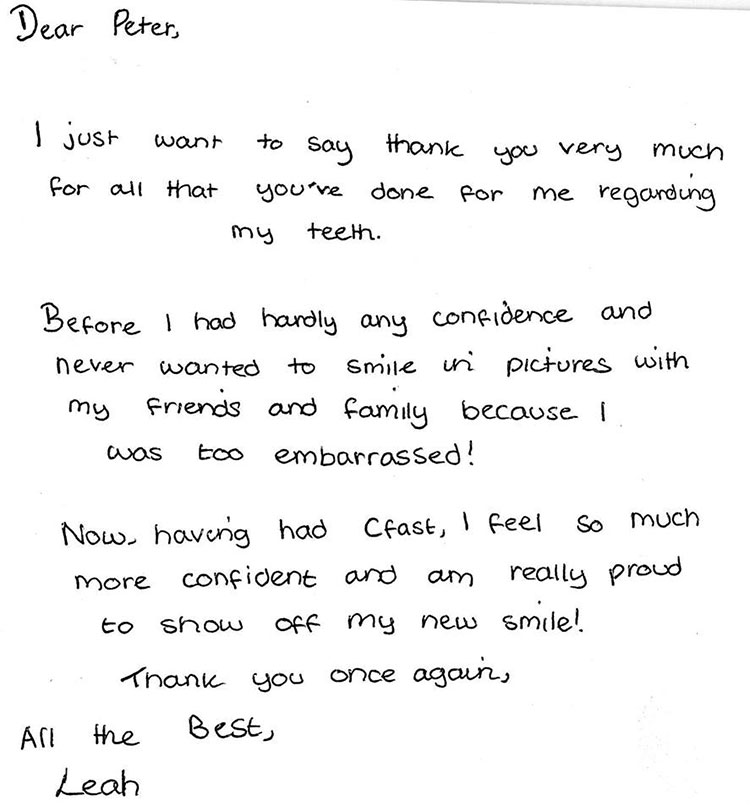 Dear Peter,
I just want to say thank you very much
for all that you've done for me regarding
my teeth.
Before I had hardly any confidence and
never wanted to smile in pictures with
my friends and family because I
was too embarrassed!
Now, having had Cfast, I feel so much
more confident and am really proud
to show off my new smile!
Thank you once again,
All the Best,
Leah